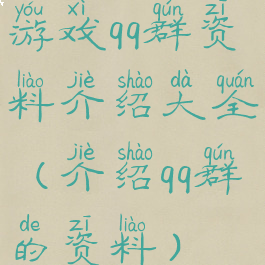 yóu xì qún zī
游戏qq群资
liào jiè shào dà quán
料介绍大全
jiè shào qún
(介绍qq群
de zī liào
的资料)